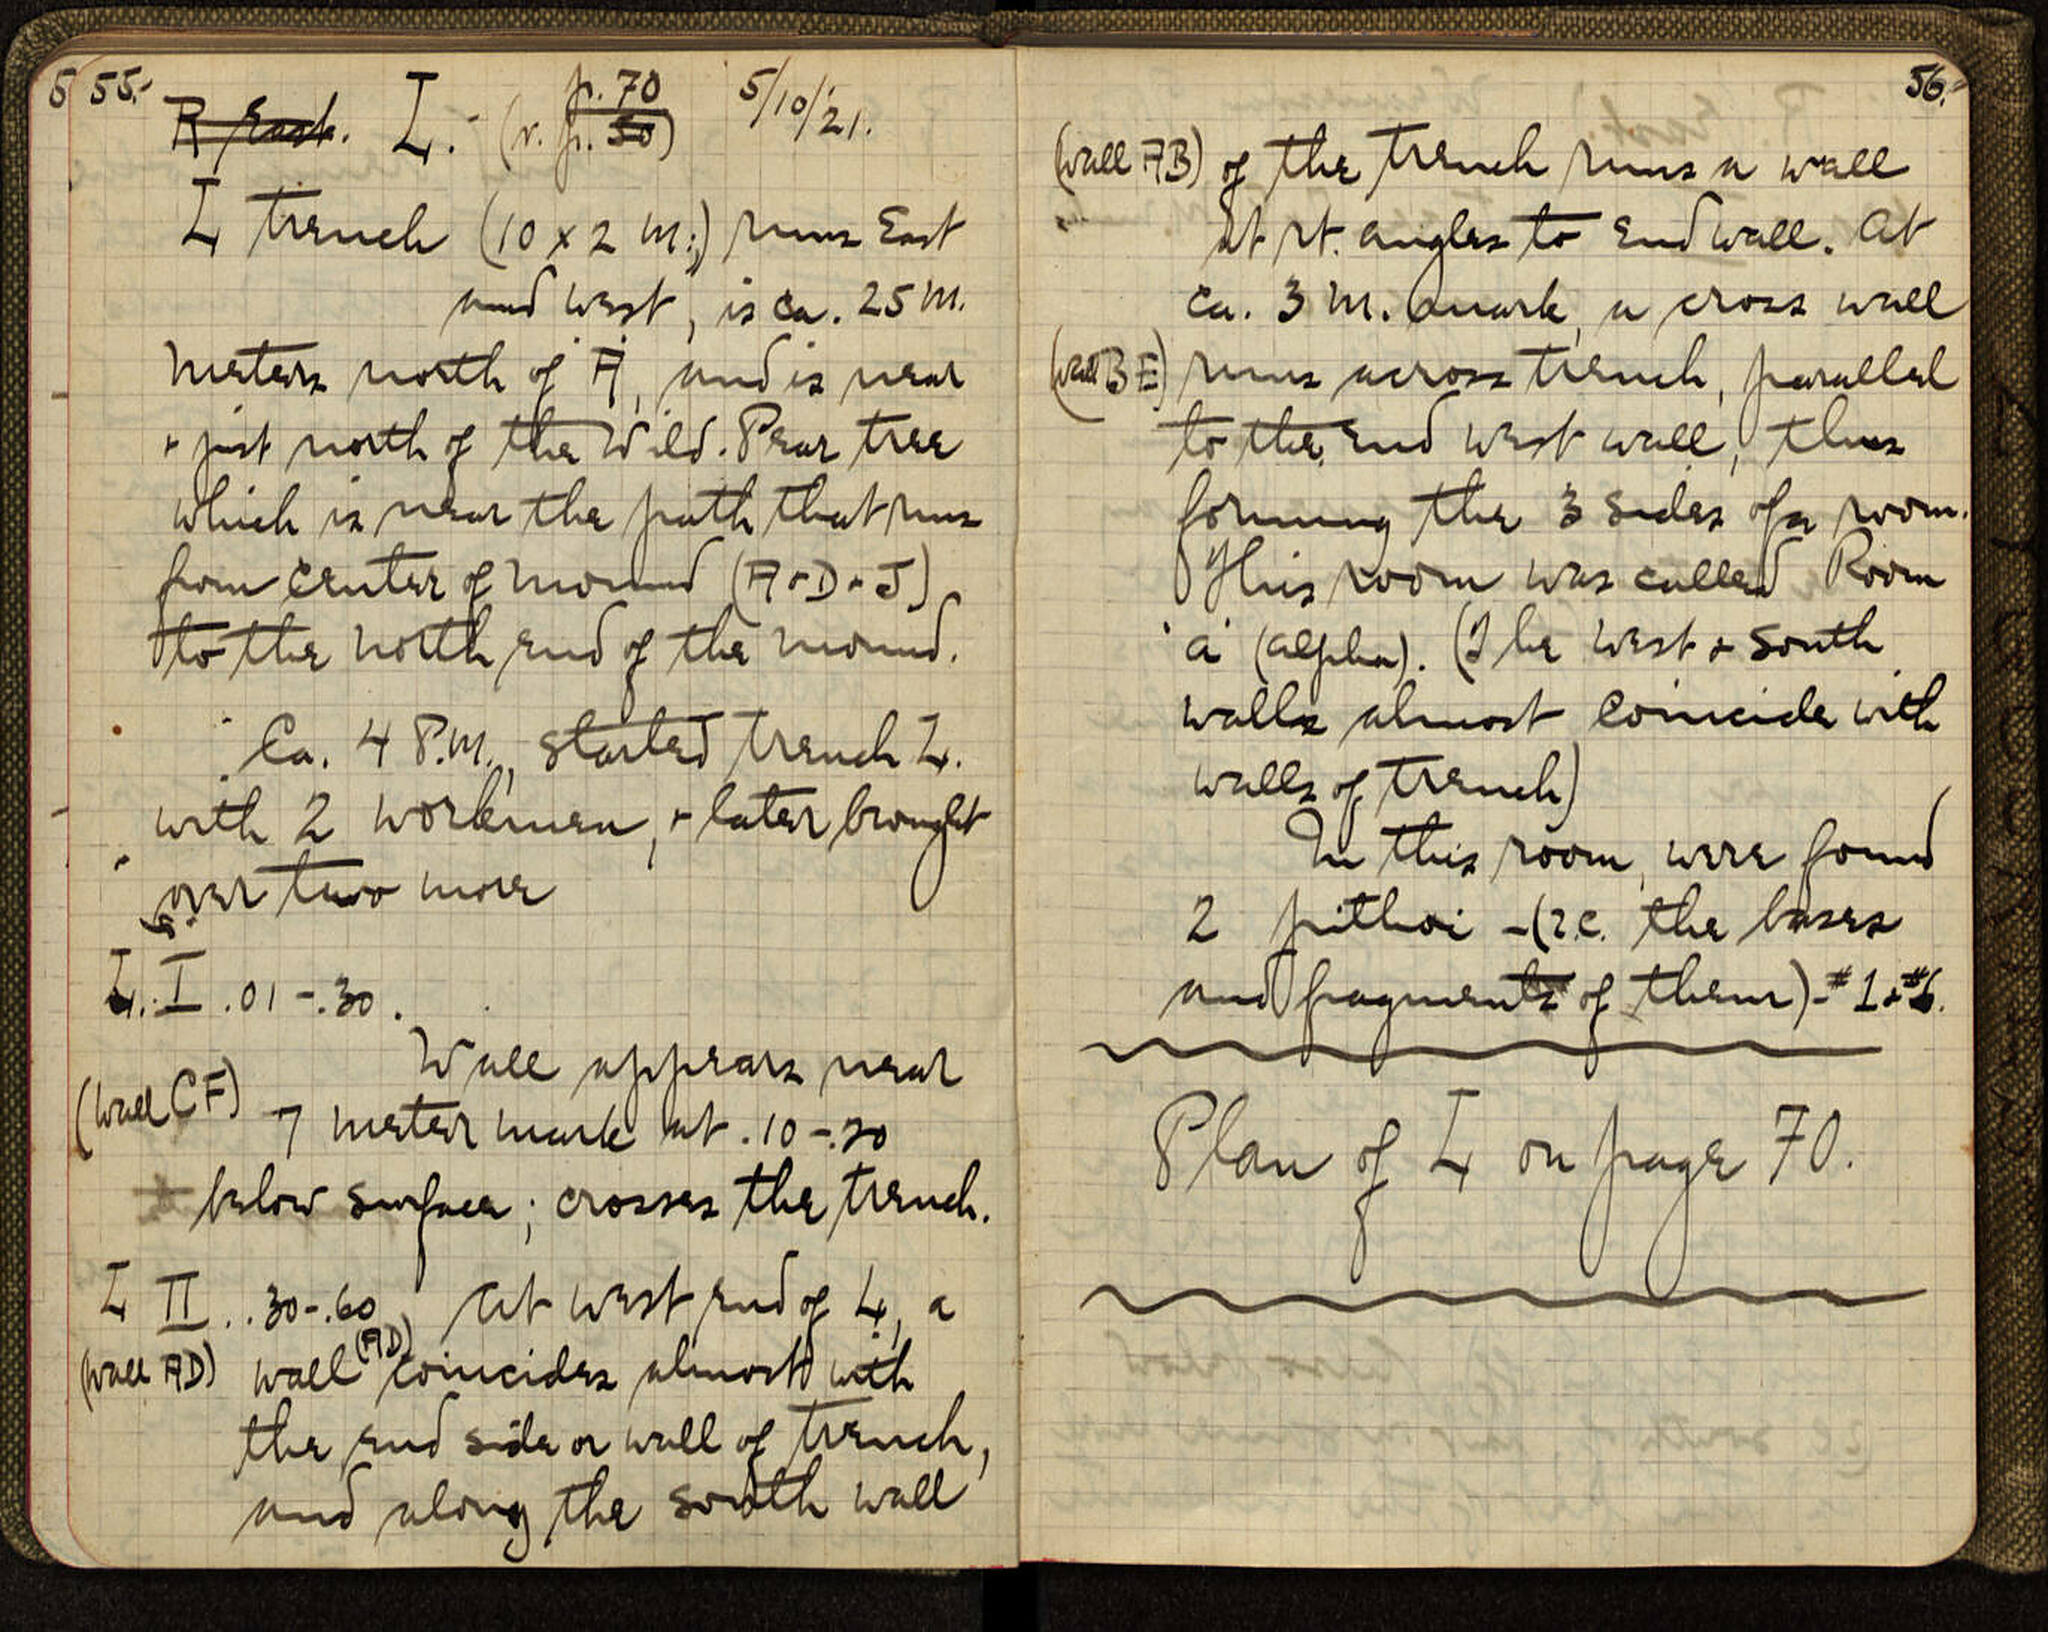 55.
R East. L. (v. p. 50) p. 70 5/10/'21.
L trench (10 x 2 m.) runs East
and West, is ca. 25 m.
meters north of A, and is near
+ just north of the Wild. Pear tree
which is near the path that runs
from center of mound (A+D+J)
to the north end of the mound.
Ca. 4 P.M., started trench L.
with 2 workmen, + later brought
over two more
L. I .01-.30.
Wall appears near
(Wall CF) 7 meter mark at .10-.20
below surface; crosses the trench.
L II ..30-.60 At west end of L, a
(Wall AD) wall (AD) coincides almost with
the end side or wall of trench,
and along the south wall
56.
(Wall AB) of the trench runs a wall
at rt. angles to end wall. At
ca. 3 m. mark, a cross wall
(Wall BE) runs across trench, parallel
to the end west wall, thus
forming the 3 sides of a room.
This room was called Room
a (alpha). (The west + south
walls almost coincide with
walls of trench)
In this room, were found
2 pithoi - (i.e. the bases
and fragments of them) - #1 + #6.
Plan of L on page 70.